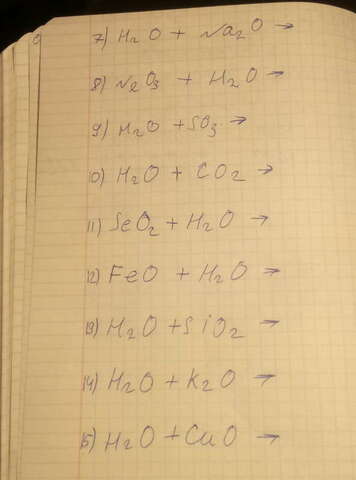 7) H₂O + Na₂O →
8) N₂O₃ + H₂O →
9) H₂O + SO₃ →
10) H₂O + CO₂ →
11) SeO₂ + H₂O →
12) FeO + H₂O →
13) H₂O + SiO₂ →
14) H₂O + K₂O →
15) H₂O + CuO →